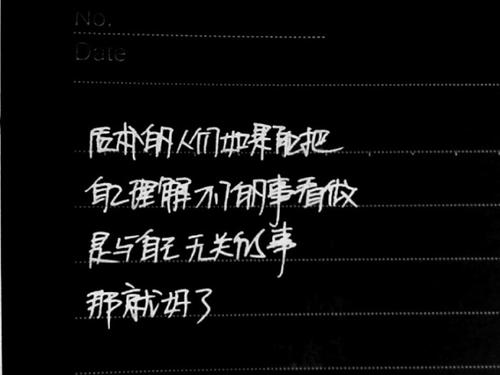 No.
Date
本的人们如果能把
自己理解不了的事看做
是与自己无关的事
那就好了